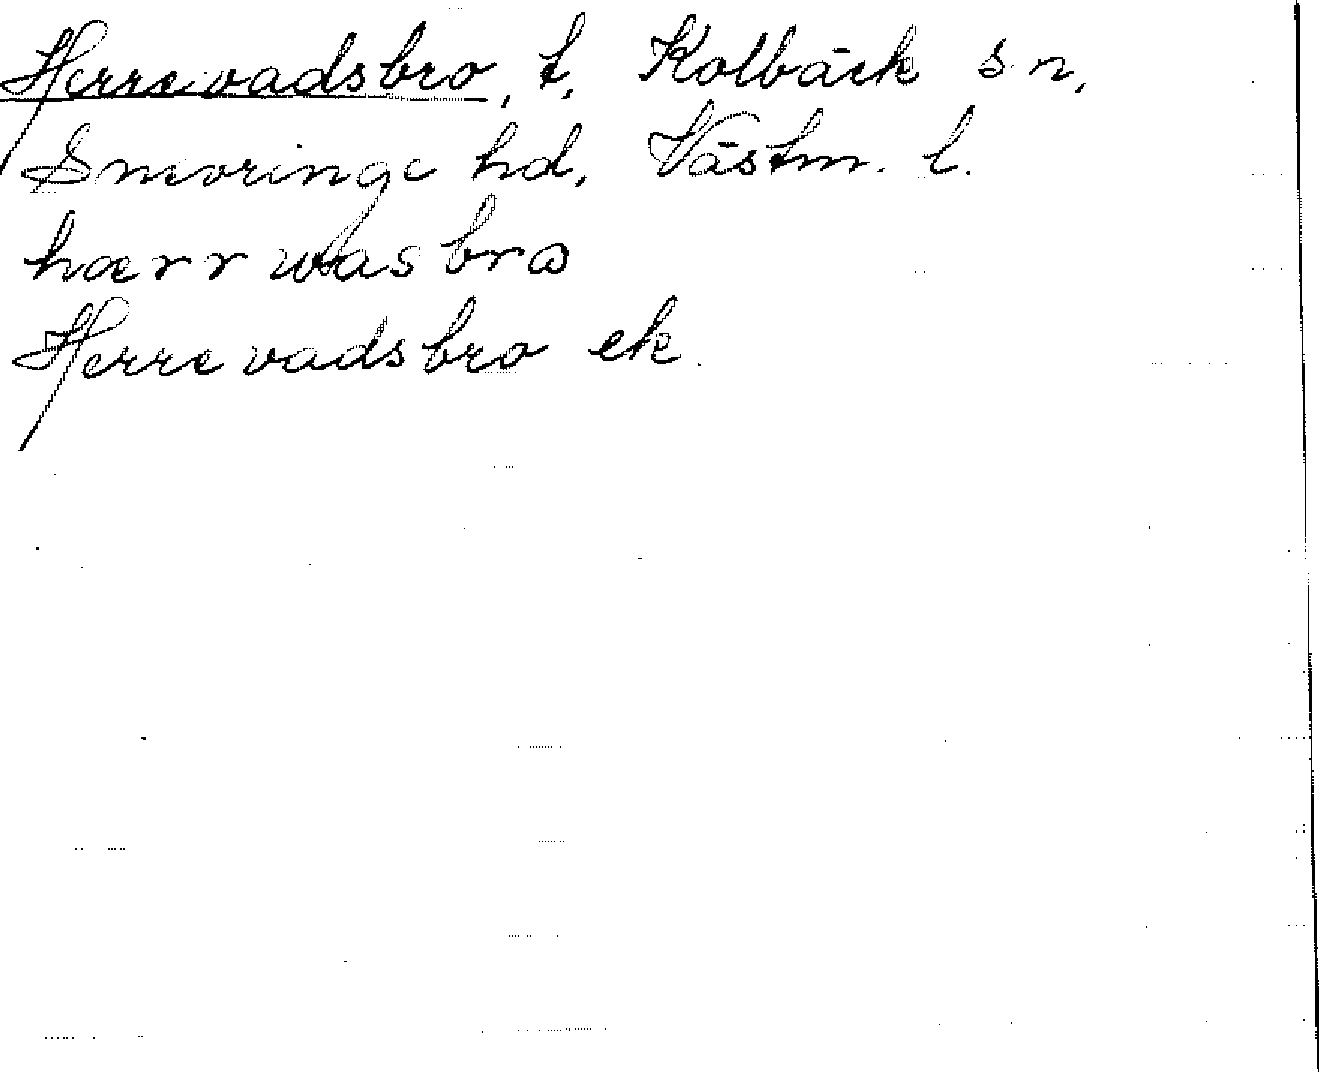 Herrevadsbro, t, Kolbäck sn,
Snevringe hd, Västm. l.
hærrwasbro
Herrevadsbro ek.